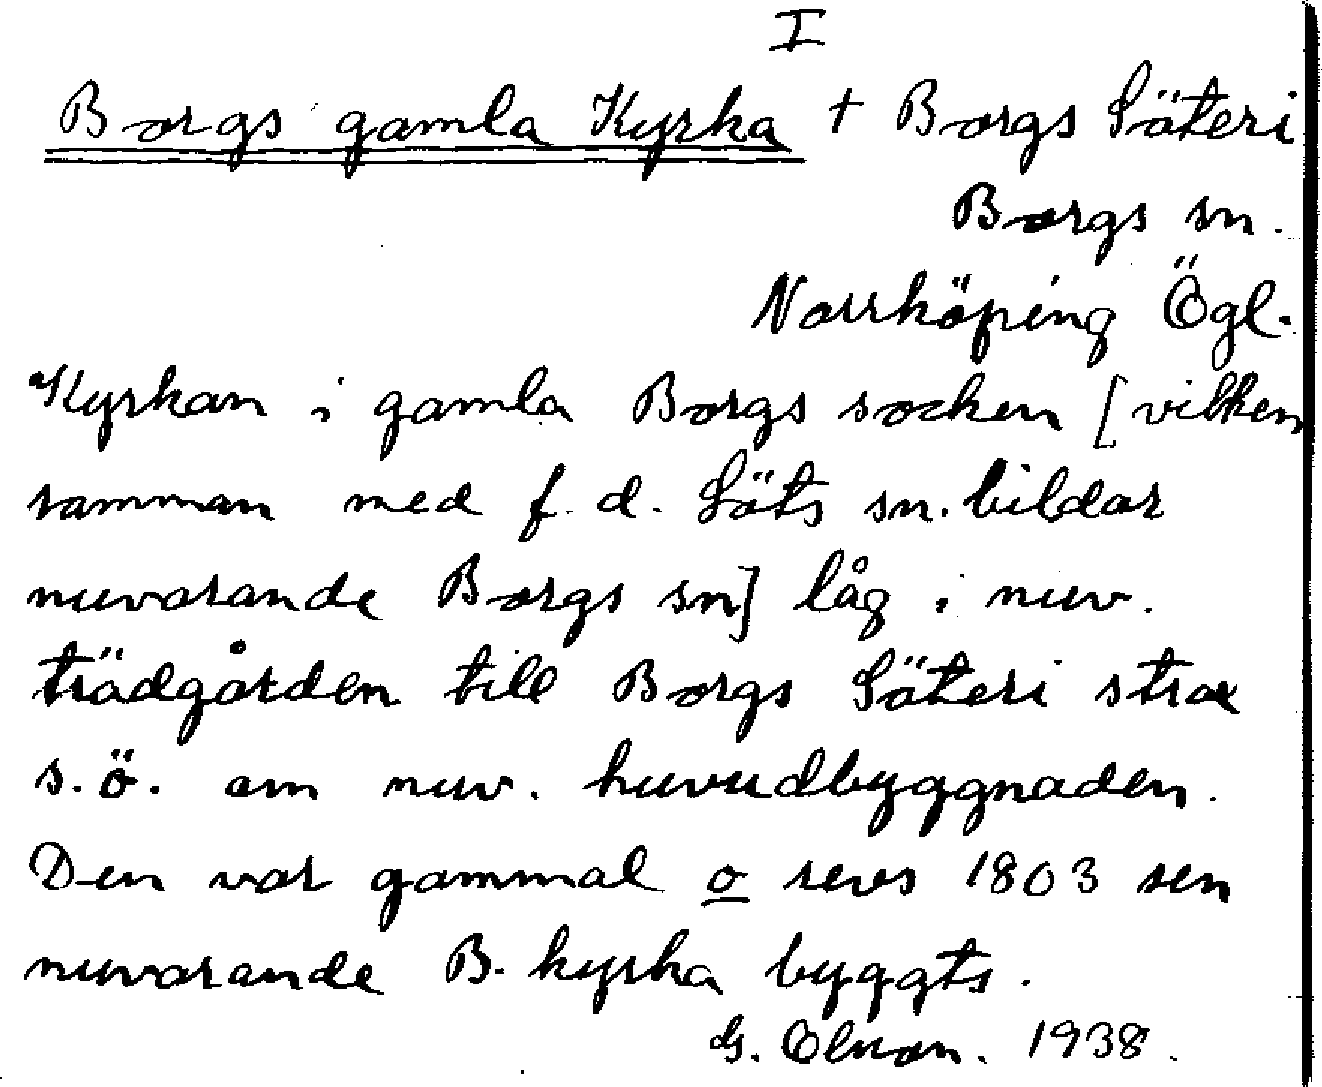 I
Borgs gamla Kyrka + Borgs Säteri
Borgs sn.
Norrköping Ögl.
Kyrkan i gamla Borgs socken [vilken
samman med f.d. Löts sn. bildar
nuvarande Borgs sn] låg i nuv.
trädgården till Borgs Säteri strax
s.ö. om nuv. huvudbyggnaden.
Den var gammal o revs 1803 sen
nuvarande B. kyrka byggts.
G. 1938.